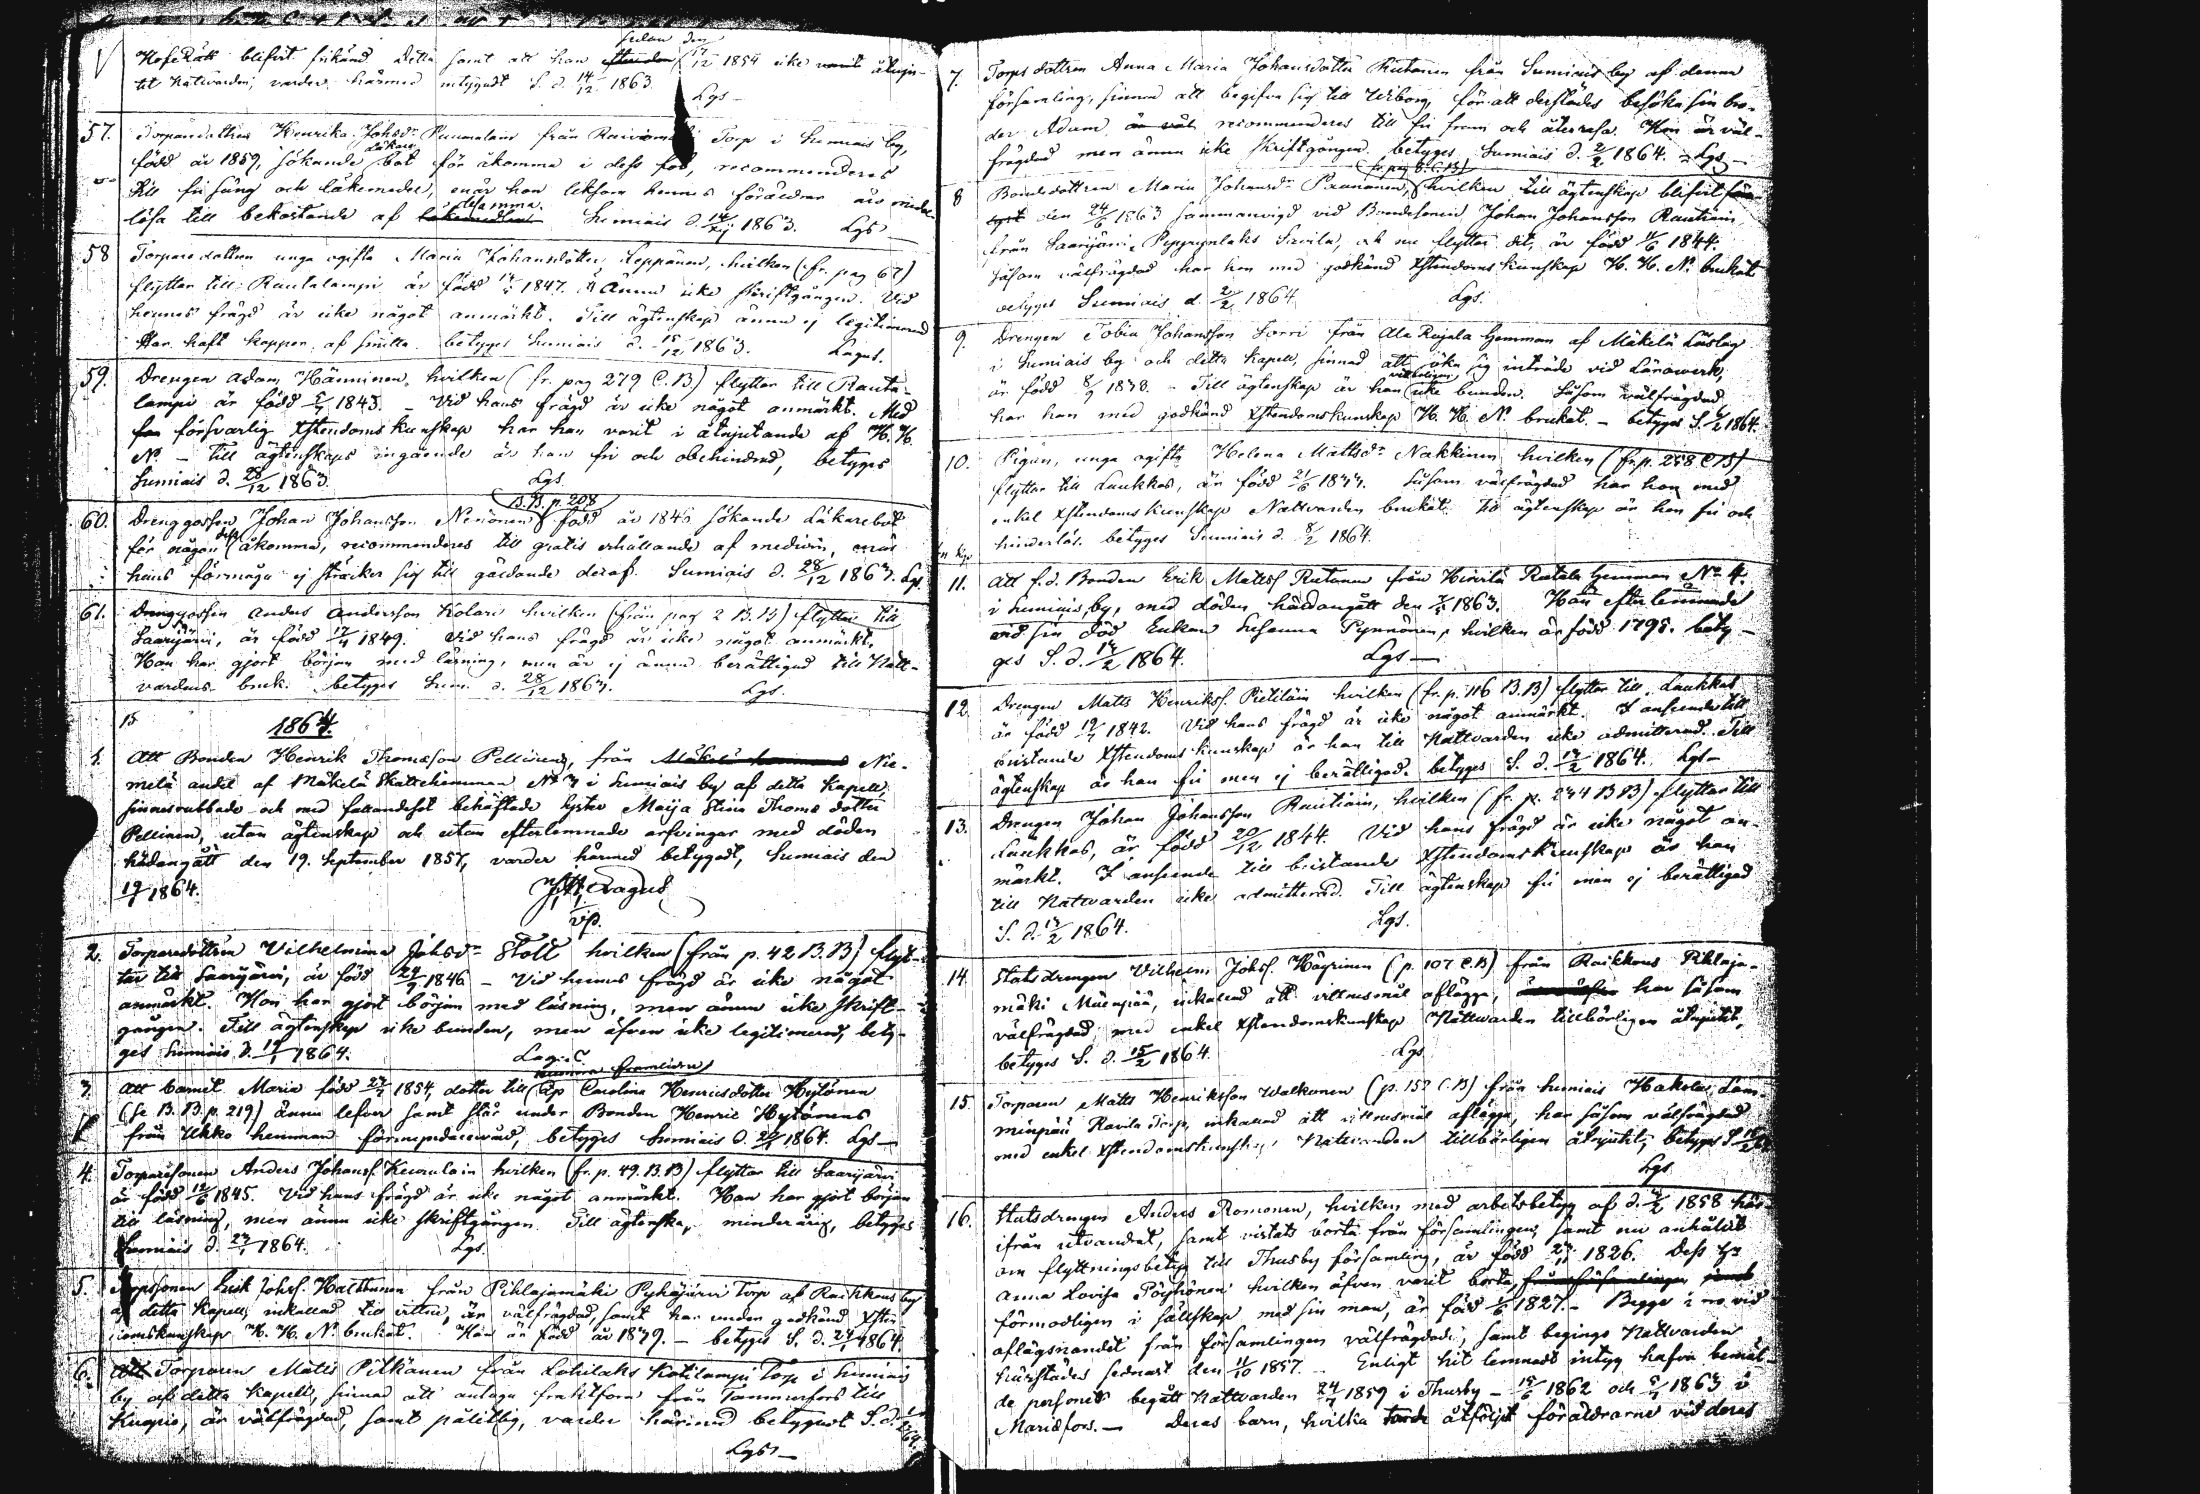 sedan den
HofsRätt blifvit frikänd detta samt att han 17/12 1854 icke varit åtnju-
tit Nattvarden, varder härmed intygadt S. d. 14/12 1863.
Lgs
57. Torparedottren Henrika Johsdr Puumalain från Torp i Sumiais by,
född år 1859, sökande läkare bot för åkomma i dess fot, recommenderes
till fri säng och läkemedel, enär hon liksom hennes föräldrar äro medel-
lösa till bekostande af desamma. Sumiais d. 14/12 1863. Lgs
58 Torparedottren unga ogifta Maria Johansdotter Leppänen, hvilken (fr. pag 67)
flyttar till Rautalampi är född 1847. Är ännu icke skriftgången. Vid
hennes frägd är icke något anmärkt. Till ägtenskap ännu ej legitimerad
Har haft koppor af smitta. betyges Sumiais d. 15/12 1863. Lagus.
59. Drengen Adam Hänninen, hvilken (fr. pag 279 C.B) flyttar till Rauta-
lampi är född 1843. – Vid hans frägd är icke något anmärkt. Med
försvarlig Xstendoms kunskap har han varit i åtnjutande af H. H.
N. – Till ägtenskaps ingående är han fri och obehindrad, betyges
Sumiais d. 28/12 1863. Lgs.
B.B. p. 208
60. Drenggossen Johan Johansson Nenonen född år 1846 sökande Läkarebot
för någon dess åkomma, recommenderes till gratis erhållande af medicin, enär
hans förmåga ej sträcker sig till gäldande deraf. Sumiais d. 28/12 1863. Lgs.
61. Drenggossen Anders Andersson Kolari hvilken (från pag 2 B.B) flyttar till
Saarijärvi, är född 1849. Vid hans frägd är icke något anmärkt.
Han har gjort början med läsning, men är ej ännu berättigad till Natt-
vardens bruk. betyges Sum. d. 28/12 1863. Lgs.
1864.
1. Att Bonden Henrik Thomasson Pellinens, från Nie-
melä andel af Mäkelä Skattehemman No 7 i Sumiais by af detta Kapell,
sinnesrubbade och med fallandesot behäftade syster Maija Stina Thomae dotter
Pellinen, utan ägtenskap och utan efterlemnade arfvingar med döden
hädangått den 19. September 1857, varder härmed betygadt, Sumiais den
19/1 1864. Lagus
vp.
2. Torparedottren Vilhelmina Johsdr Stoll hvilken (från p. 42 B.B) flyt-
tar till Saarijärvi, är född 24/9 1846 – Vid hennes frägd är icke något
anmärkt. Hon har gjort början med läsning, men ännu icke skrift-
gången. Till ägtenskap icke bunden, men äfven icke legitimerad, bety-
ges Sumiais d. 19/1 1864. Lagus
3. Att barnet Maria född 1854, dotter till Carolina Henricsdotter Hytönen
(se B.B. p. 219) ännu lefver samt står under Bonden Henric Hytönens
från Ukko hemman förmyndarevård, betyges Sumiais d. 1864. Lgs
4. Torparesonen Anders Johanss. Keurulain hvilken (fr. p. 49. B.B) flyttar till Saarijärvi
är född 12/6 1845. Vid hans frägd är icke något anmärkt. Han har gjort början
till läsning, men ännu icke skriftgången. Till ägtenska, minderårig, betyges
Sumiais d. 23/1 1864. Lgs.
5. Erik Johss. Hakttunen från Pihlajamäki Pyhäjärvi Torp af Raikkaus by
af detta Kapell, inkallad till vittne, är välfrägdad, samt har under godkänd Xsten
domskunskap H. H. N. brukat. Han är född år 1839. – betyges S. d. 1864.
6. Torparen Matts Pitkänen från Lahilaks Kotilampi Torp i Sumiais
by af detta Kapell, sinnad att antaga fraktfora från Tammerfors till
Kuopio, är välfrägdad, samt pålitlig, varder härmed betygadt S. d.
Lgs
7. Torps dottren Anna Maria Johansdotter Rutanen från Sumiais by af denna
församling, sinnad att begifva sig till Wiborg, för att derstädes besöka sin bro-
der Adam recommenderes till fri fram och återresa. Hon är väl-
frägdad men ännu icke skriftgången. betyges Sumiais d. 2/2 1864. Lgs
8 Bondedottren Maria Johansdr Paananen, hvilken till ägtenskap blifvit
den 24/6 1863 sammanvigd vid Bondesonen Johan Johansson Rautiain,
från Saarijärvi, Savila, och nu flyttar dit, är född 1844.
Såsom välfrägdad har hon med godkänd Xstendoms kunskap H. H. N. brukat
betyges Sumiais d. 2/2 1864. Lgs.
9. Drengen Tobias Johansson Sorri från Ala Rajala Hemman af Mäkelä Läslag
i Sumiais by och detta Kapell, sinnad att söka sig inträde vid Länowerk,
är född 8/9 1838. – Till ägtenskap är han icke bunden. Såsom välfrägdad
har han med godkänd Xstendomskunskap H. H. N. brukat. – betyges S. 1864.
10. Pigan, unga ogifta Helena Mattsdr Nakkinen hvilken (fr. p. 258 C.B)
flyttar till Laukkas, är född 21/6 1844. Såsom välfrägdad har hon med
enkel Xstendoms kunskap Nattvarden brukat. Till ägtenskap är hon fri och
hinderlös. betyges Sumiais d. 8/2 1864.
11. Att f.d. Bonden Erik Mattss. Rutanen från Hirvilä Rutala Hemman No 4.
i Sumiais by, med döden hädangått den 1863. Han efterlemnade
vid sin död Enkan Susanna Pynnönen, hvilken är född 1795. bety-
ges S. d. 14/2 1864. Lgs
12. Drengen Matts Henrikss. Pietiläin hvilken (fr. p. 116 B.B) flyttar till Laukkas
är född 19/7 1842. Vid hans frägd är icke något anmärkt. I anseende till
bristande Xstendoms kunskap är han till Nattvarden icke admitterad. Till
ägtenskap är han fri men ej berättigad. betyges S. d. 14/2 1864. Lgs
13. Drengen Johan Johansson Rautiain, hvilken (fr. p. 244 B.B) flyttar till
Laukkas, är född 20/12 1844. Vid hans frägd är icke något an-
märkt. I anseende till bristande Xstendomskunskap är han
till Nattvarden icke admitterad. Till ägtenskap fri men ej berättigad
S. d. 14/2 1864. Lgs.
14. Statsdrengen Vilhelm Johss. Häyrinen (p. 107 C.B) från Raikkaus Pihlaja-
mäki Mäenpää, inkallad att vittnesmål aflägga, har såsom
välfrägdad med enkel Xstendomskunskap Nattvarden tillbörligen åtnjutit,
betyges S. d. 15/2 1864. Lgs
15 Torparen Matts Henriksson Walkonen (p. 152 C.B) från Sumiais Hakola, Lam-
minpää Kavila Torp, inkallad att vittnesmål aflägga, har såsom välfrägdad
med enkel Xstendomskunskap Nattvarden tillbörligen åtnjutit, betyges S.
Lgs
16. Statsdrengen Anders Romonen, hvilken med arbetsbetyg af d. 1858 här-
ifrån utvandrat, samt vistats borta från församlingen, samt nu anhållit
om flyttningsbetyg till Thusby församling, är född 1826. Dess hu
Anna Lovisa Pöyhönen hvilken äfven varit borta,
förmodligen i sällskap med sin man, är född 1827. – Begge äro vid
aflägsnandet från församlingen välfrägdade, samt begingo Nattvarden
härstädes sednast den 11/10 1857. – Enligt hit lemnadt intyg hafva bemäl-
de personer begått Nattvarden 24/7 1859 i Thusby – 15/6 1862 och 1863 i
Mariefors. – Deras barn, hvilka åtföljt föräldrarne vid deras